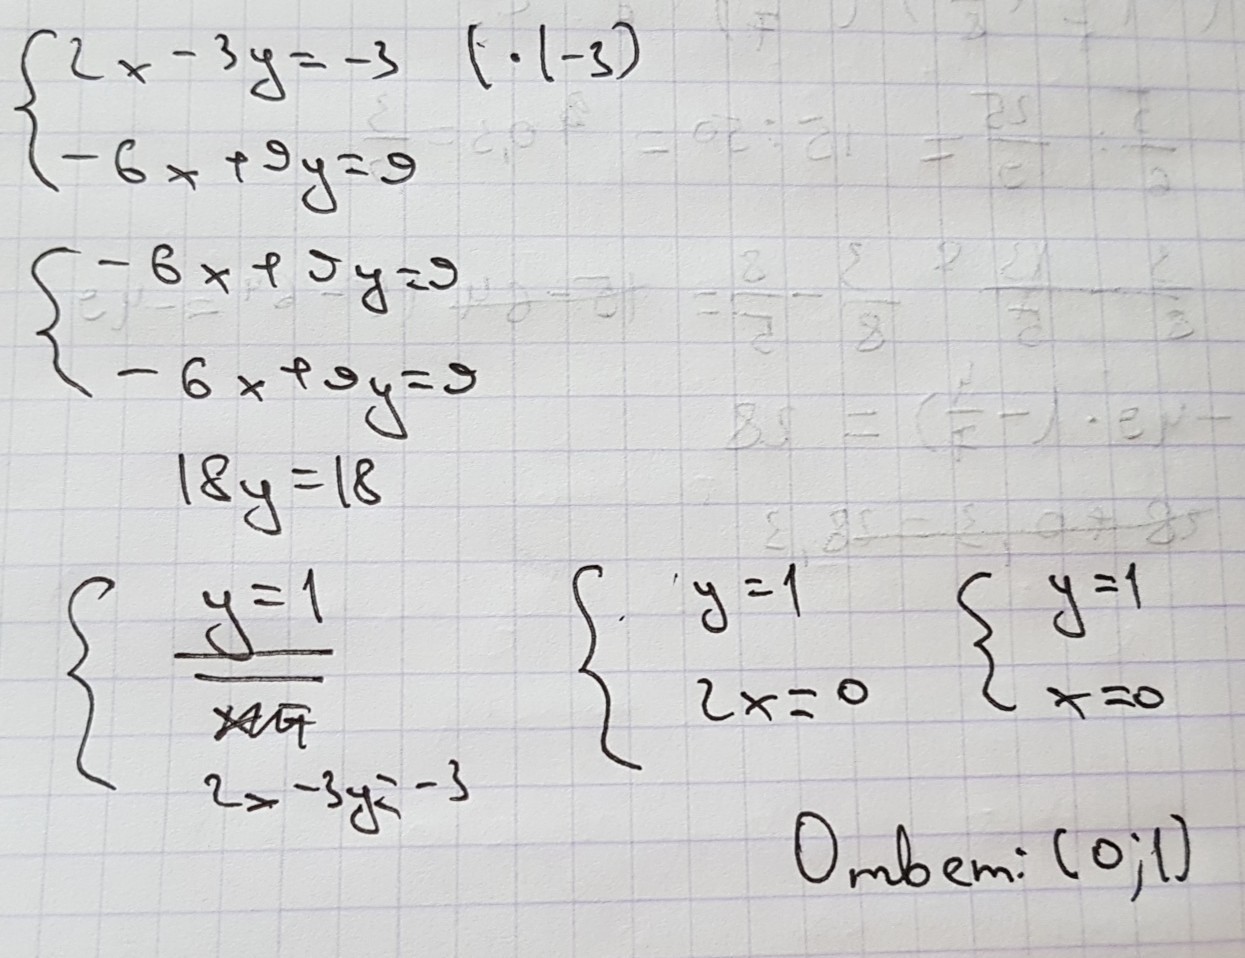 2x - 3y = -3 (·(-3)
-6x + 9y = 9
-6x + 9y = 9
-6x + 9y = 9
18y = 18
y = 1
2x - 3y = -3
y = 1
2x = 0
y = 1
x = 0
Ответ: (0;1)